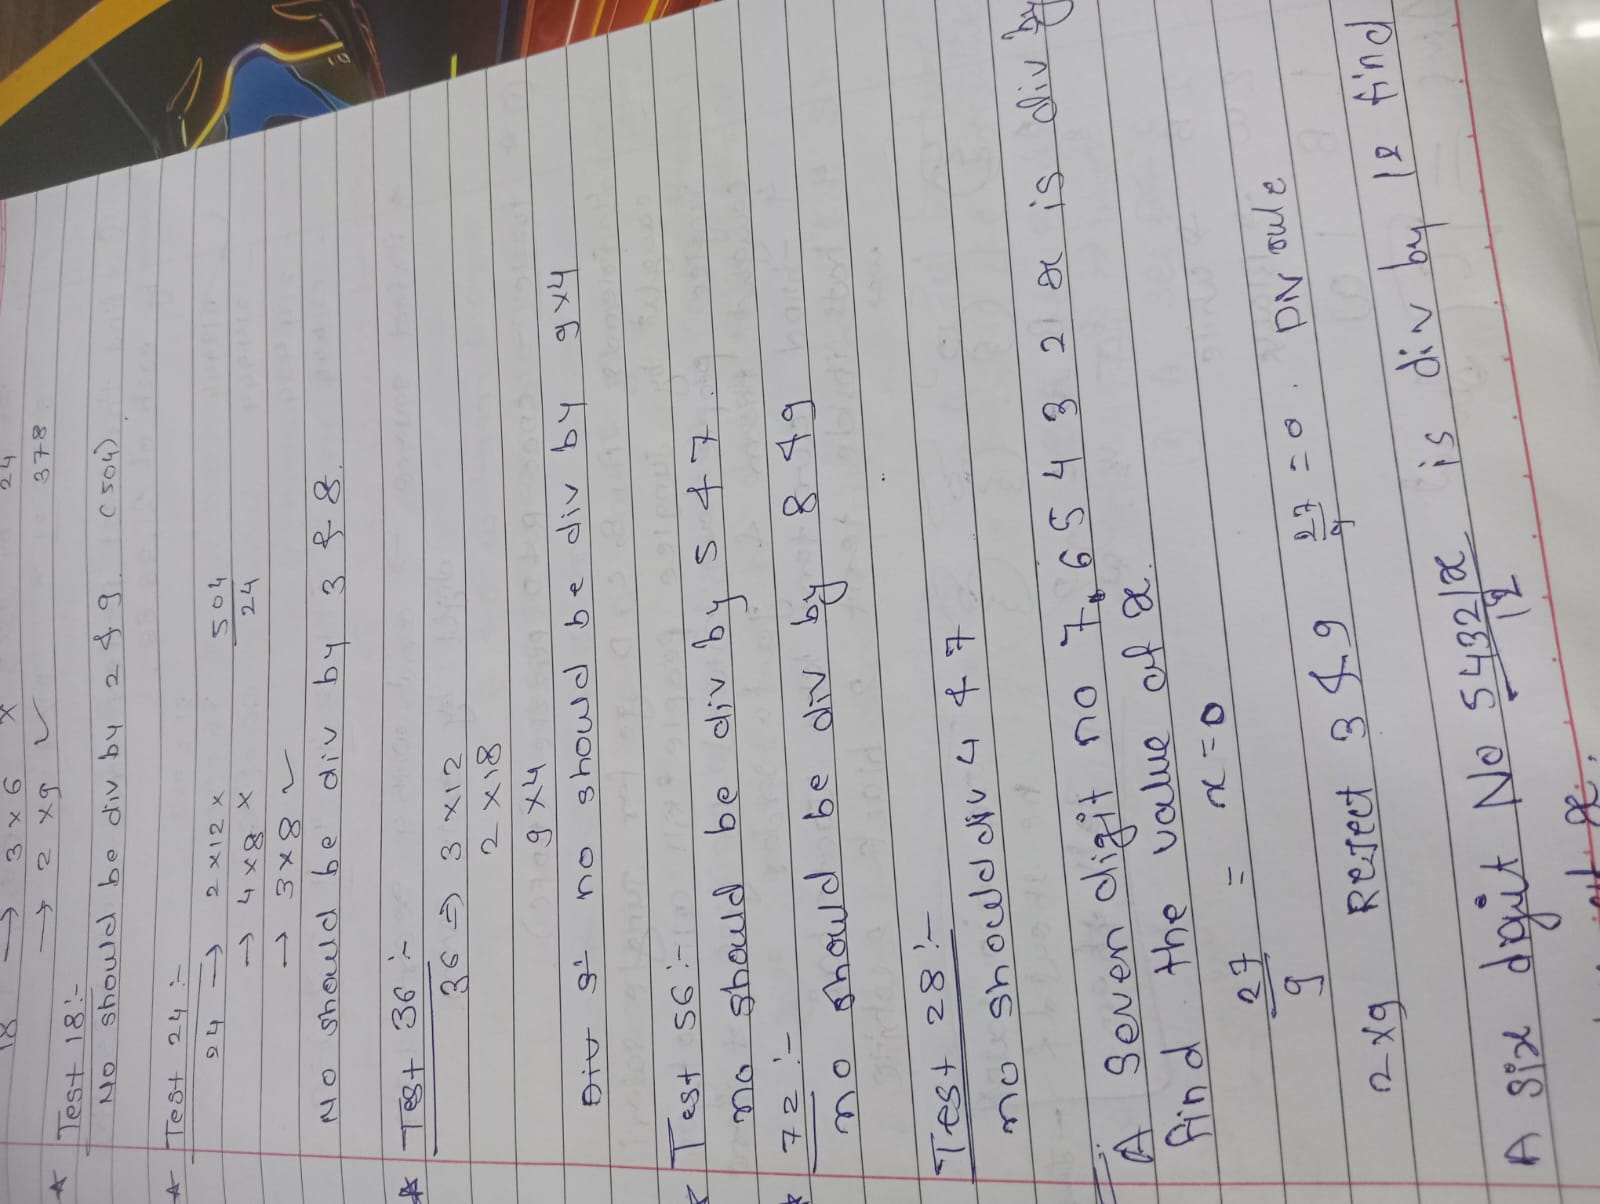 18 → 3 x 6 x 24
→ 2 x 9 ✓ 378
* Test 18:-
No should be div by 2 & 9. (504)
* Test 24 :-
24 → 2 x 12 x 504/24
→ 4 x 8 x
→ 3 x 8 ✓
No should be div by 3 & 8.
* Test 36 :-
36 => 3 x 12
2 x 18
9 x 4
no should be div by 9x4
Test 56:-
no should be div by 5 & 7.
72 :-
no should be div by 8 & 9
Test 28 :-
no should div 4 & 7
A Seven digit no 7,65432x is div by
find the value of x.
27/9 = x = 0
2x9 Reject 3 & 9 27/9 = 0. DIV rule
A six digit No 5432/x/12 is div by 12 find